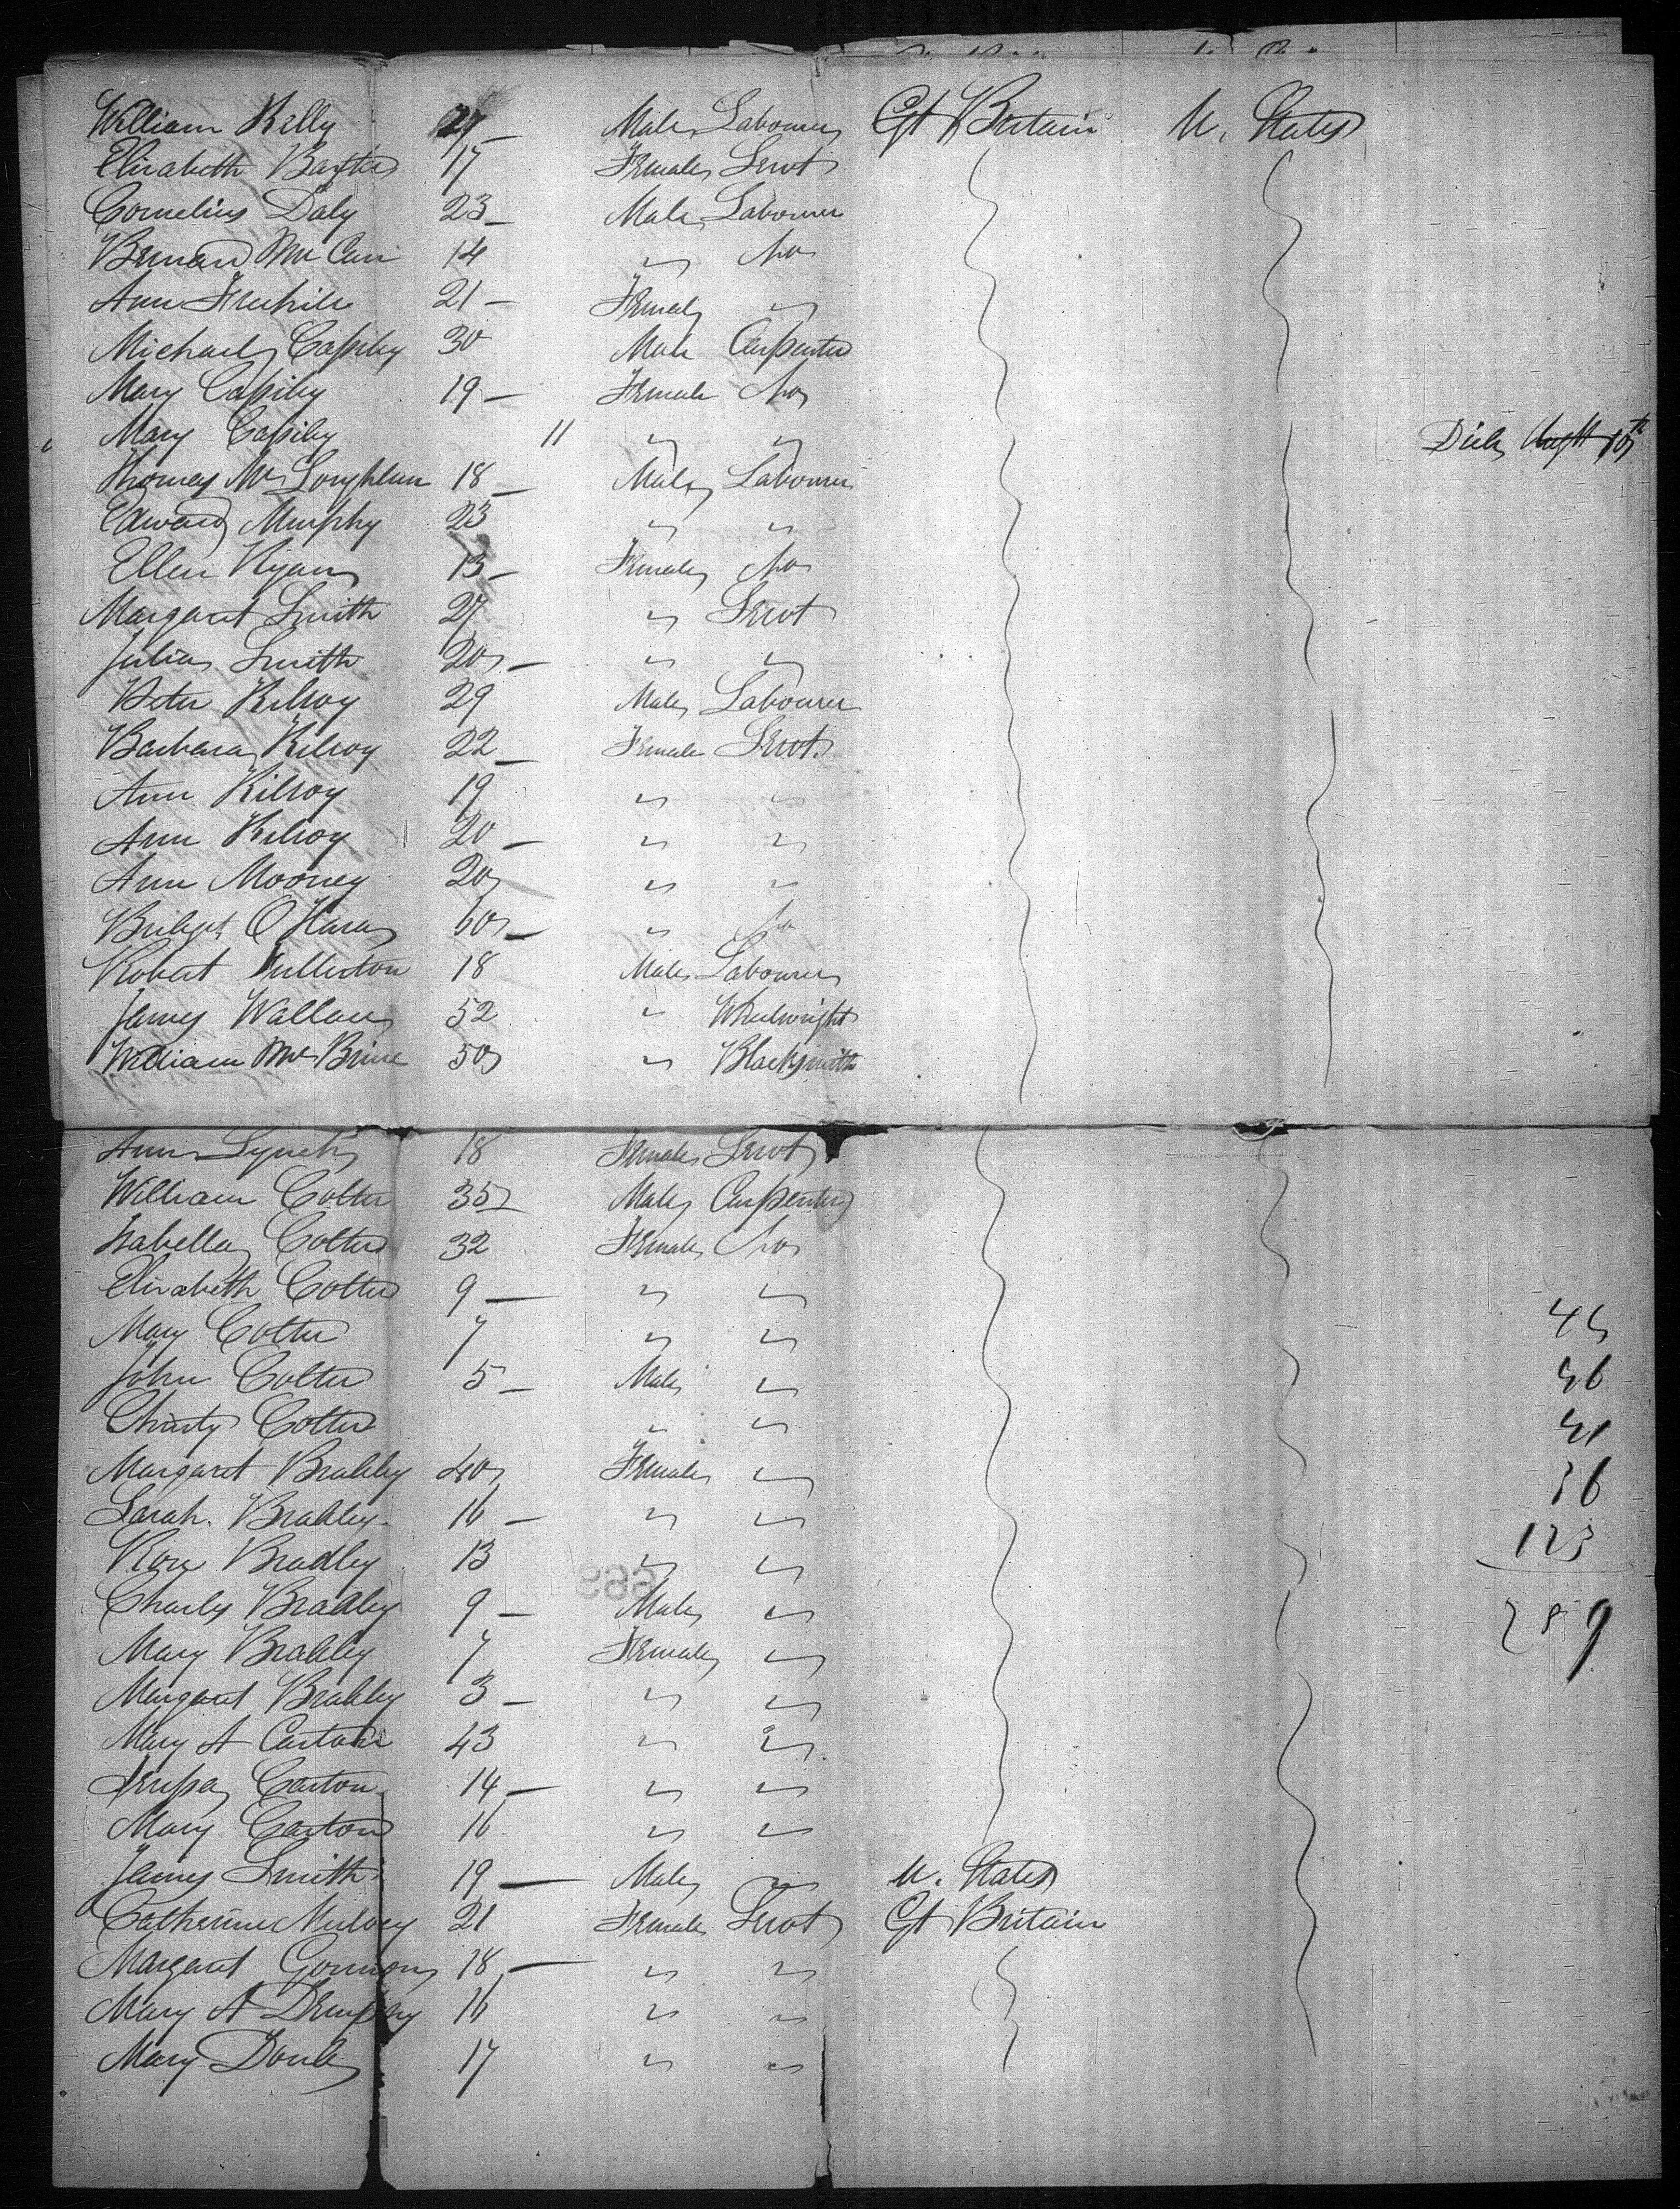 William Kelly 27 Male Labourer Gt Britain U. States
Elizabeth Baxter 17 Female Servt
Cornelius Daly 23 Male Labourer
Bernard McCan 14 " No
Ann 21 Female "
Michael Cassily 30 Male Carpenter
Mary Cassily 19 Female No
Mary Cassily 11 " " Died Augst 10th
Thomas McLoughlan 18 Male Labourer
Edward Murphy 23 " "
Ellen Ryan 13 Female No
Margaret Smith 27 " Servt
Julia Smith 20 " "
Peter Kilroy 29 Male Labourer
Barbara Kilroy 22 Female Servt.
Ann Kilroy 19 " "
Ann Kilroy 20 " "
Ann Mooney 20 " "
Bridget O'Hara 60 " No
Robert Fullerton 18 Male Labourer
James Wallace 52 " Wheelwright
William McBrine 50 " Blacksmith
Ann Lynch 18 Female Servt
William Colter 35 Male Carpenter
Isabella Colter 32 Female No
Elizabeth Colter 9 " "
Mary Colter 7 " "
John Colter 5 Male "
Christy Colter " "
Margaret Bradley 40 Female "
Sarah Bradley 16 " "
Rose Bradley 13 " "
Charles Bradley 9 Male "
Mary Bradley 7 Female "
Margaret Bradley 3 " "
Mary A Carton 43 " "
Carton 14 " "
Mary Carton 16 " "
James Smith 19 Male " U. States
Catherine Mulvey 21 Female Servt Gt Britain
Margaret Gormon 18 " "
Mary A Dempsey 16 " "
Mary 17 " "
46
41
36
123
289